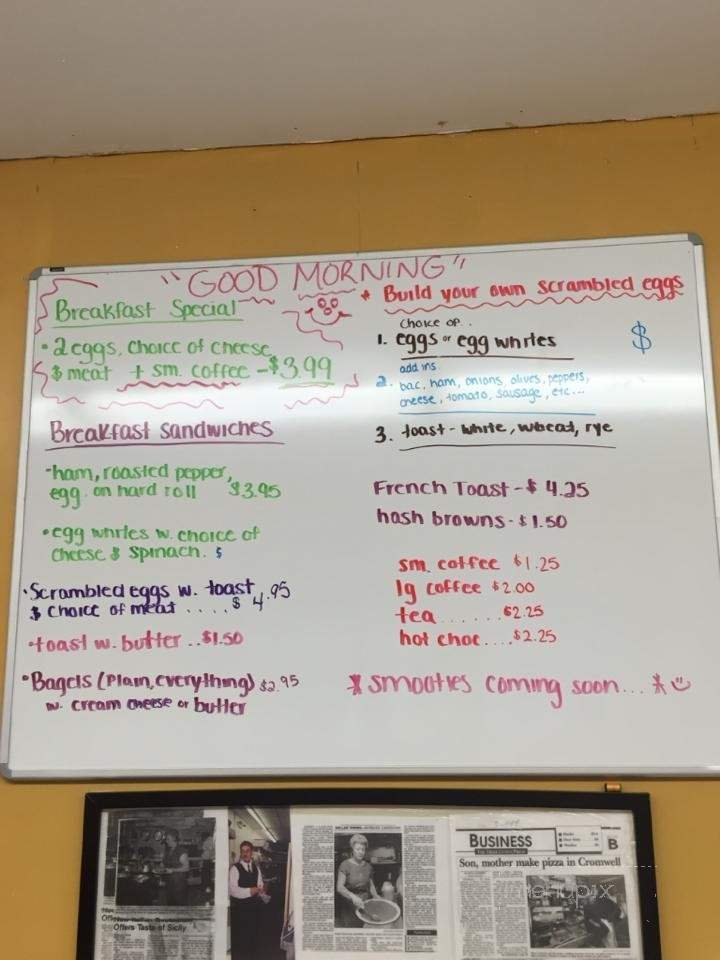 "GOOD MORNING"
Breakfast Special
• 2 eggs, choice of cheese
& meat + sm. coffee - $3.99
Breakfast Sandwiches
• ham, roasted pepper,
egg on hard roll $3.95
• egg whites w. choice of
cheese & spinach. $
• Scrambled eggs w. toast
& choice of meat .... $4.95
• toast w. butter .. $1.50
• Bagels (Plain, everything) $2.95
w. cream cheese or butter
* Build your own scrambled eggs
choice of..
1. eggs or egg whites $
add ins
2. bac, ham, onions, olives, peppers,
cheese, tomato, sausage, etc...
3. toast - white, wheat, rye
French Toast - $4.25
hash browns - $1.50
sm. coffee $1.25
lg coffee $2.00
tea ...... $2.25
hot choc .... $2.25
* smooties coming soon... *
Offers Taste of Sicily
BUSINESS
B
Son, mother make pizza in Cromwell
menupix